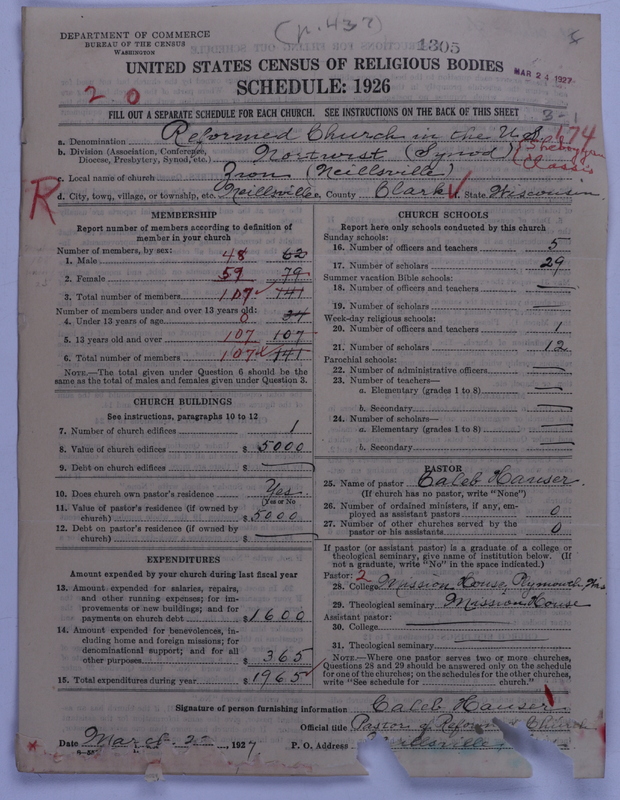 (p. 437)
1305
DEPARTMENT OF COMMERCE
BUREAU OF THE CENSUS
WASHINGTON
UNITED STATES CENSUS OF RELIGIOUS BODIES
MAR 24 1927
SCHEDULE: 1926
2 0
FILL OUT A SEPARATE SCHEDULE FOR EACH CHURCH. SEE INSTRUCTIONS ON THE BACK OF THIS SHEET
3-1
a. Denomination Reformed Church in the U.S. 174
b. Division (Association, Conference, Diocese, Presbytery, Synod, etc.) Northwest (Synod) (Sheboygan Classis
c. Local name of church Zion (Neillsville)
d. City, town, village, or township, etc. Neillsville e. County Clark f. State Wisconsin
R
MEMBERSHIP
Report number of members according to definition of
member in your church
Number of members, by sex:
1. Male 48 62
2. Female 59 79
3. Total number of members 107 141
Number of members under and over 13 years old:
4. Under 13 years of age 0 34
5. 13 years old and over 107 107
6. Total number of members 107 141
NOTE.—The total given under Question 6 should be
same as the total of males and females given under Question 3.
CHURCH BUILDINGS
See instructions, paragraphs 10 to 12
7. Number of church edifices 1
8. Value of church edifices $ 5000
9. Debt on church edifices $ —
10. Does church own pastor's residence Yes
Yes or No
11. Value of pastor's residence (if owned by
church) $ 5000
12. Debt on pastor's residence (if owned by
church) $ —
EXPENDITURES
Amount expended by your church during last fiscal year
13. Amount expended for salaries, repairs,
and other running expenses; for im-
provements or new buildings; and for
payments on church debt $ 1600
14. Amount expended for benevolences, in-
cluding home and foreign missions; for
denominational support; and for all
other purposes $ 365
15. Total expenditures during year $ 1965
CHURCH SCHOOLS
Report here only schools conducted by this church
Sunday schools:
16. Number of officers and teachers 5
17. Number of scholars 29
Summer vacation Bible schools:
18. Number of officers and teachers —
19. Number of scholars —
Week-day religious schools:
20. Number of officers and teachers 1
21. Number of scholars 12
Parochial schools:
22. Number of administrative officers —
23. Number of teachers—
a. Elementary (grades 1 to 8) —
b. Secondary —
24. Number of scholars—
a. Elementary (grades 1 to 8) —
b. Secondary —
PASTOR
25. Name of pastor Caleb Hauser.
(If church has no pastor, write "None")
26. Number of ordained ministers, if any, em-
ployed as assistant pastors 0
27. Number of other churches served by the
pastor or his assistants 0
If pastor (or assistant pastor) is a graduate of a college or
theological seminary, give name of institution below. (If
not a graduate, write "No" in the space indicated.)
Pastor: 2
28. College Mission House, Plymouth Wis
29. Theological seminary Mission House
Assistant pastor:
30. College
31. Theological seminary
NOTE.—Where one pastor serves two or more churches,
Questions 28 and 29 should be answered only on the schedule
for one of the churches; on the schedules for the other churches,
write "See schedule for church."
Signature of person furnishing information Caleb Hauser
Official title Pastor of Reformed Church
Date March 22, 1927 P. O. Address Neillsville